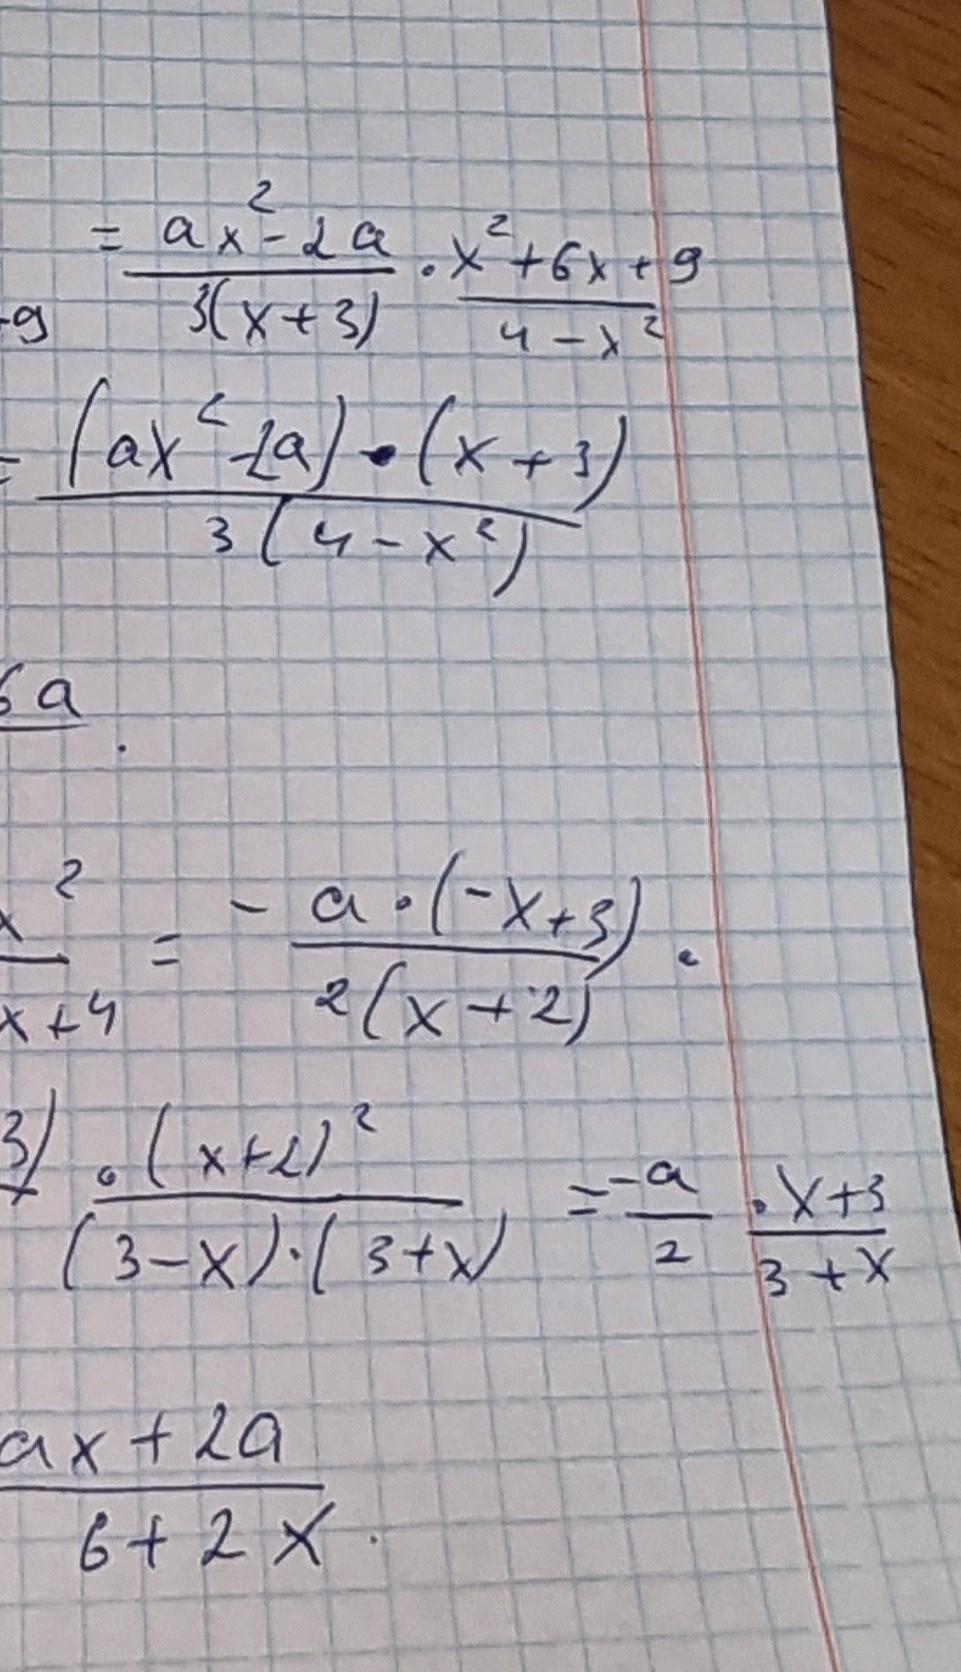 = (ax² - 2a)/(3(x+3)) · (x² + 6x + 9)/(4 - x²)
+9
= ((ax² - 2a) · (x + 3))/(3(4 - x²))
6a
.
x²/(x+4) = - (a · (-x+3))/(2(x+2)) ·
3) · (x+2)²/((3-x)·(3+x)) = -a/2 · (x+3)/(3+x)
(ax + 2a)/(6 + 2x).